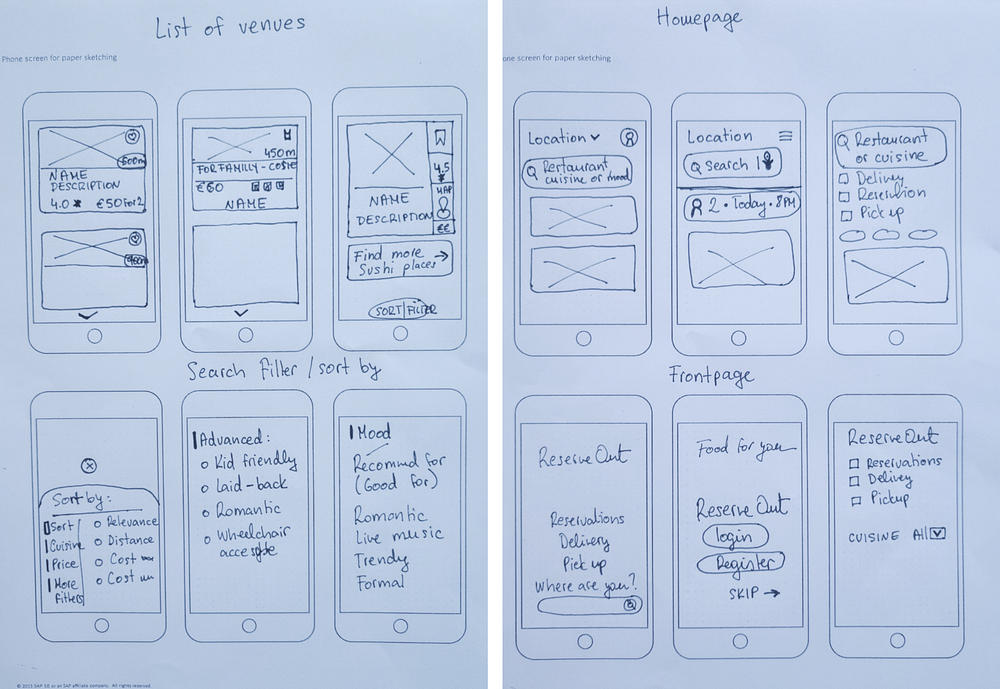 List of venues
Phone screen for paper sketching
500m
NAME
DESCRIPTION
4.0 €50 For 2
450m
FOR FAMILLY - COSIE
€€60
NAME
4.5
MAP
NAME
DESCRIPTION
€€
Find more
Sushi places
SORT|FILTER
Search Filter / sort by
Sort by:
Sort
Cuisine
Price
More
filters
Relevance
Distance
Cost
Cost
Advanced:
Kid friendly
Laid-back
Romantic
Wheelchair
Mood
Recommed for
(Good for)
Romantic
Live music
Trendy
Formal
© 2013 SAP SE or an SAP affiliate company. All rights reserved.
Homepage
one screen for paper sketching
Location
Restaurant
cuisine or mood
Location
Search
2 • Today • 8PM
Restaurant
or cuisine
Delivey
Pick up
Frontpage
ReserveOut
Reservations
Delivey
Pick up
Where are you?
Food for you
Reserve Out
login
Register
SKIP →
ReserveOut
Reservations
Delivey
Pickup
CUISINE All